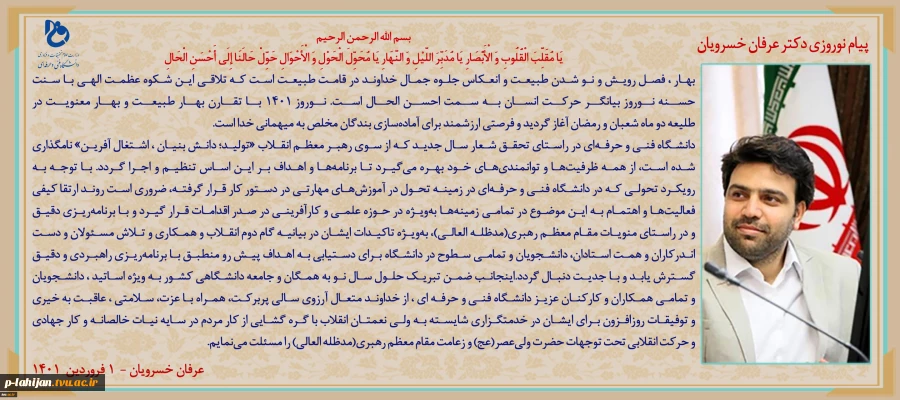 پیام نوروزی دکتر عرفان خسرویان
بسم الله الرحمن الرحیم
یَا مُقَلِّبَ الْقُلُوبِ وَ الْأَبْصَارِ یَا مُدَبِّرَ اللَّیْلِ وَ النَّهَارِ یَا مُحَوِّلَ الْحَوْلِ وَ الْأَحْوَالِ حَوِّلْ حَالَنَا إِلَى أَحْسَنِ الْحَالِ
بهار ، فصل رویش و نو شدن طبیعت و انعکاس جلوه جمال خداوند در قامت طبیعت است که تلاقی این شکوه عظمت الهی با سنت
حسنه نوروز بیانگر حرکت انسان به سمت احسن الحال است. نوروز ۱۴۰۱ با تقارن بهار طبیعت و بهار معنویت در
طلیعه دو ماه شعبان و رمضان آغاز گردید و فرصتی ارزشمند برای آماده‌سازی بندگان مخلص به میهمانی خدا است.
دانشگاه فنی و حرفه‌ای در راستای تحقق شعار سال جدید که از سوی رهبر معظم انقلاب «تولید؛ دانش بنیان ، اشتغال آفرین» نامگذاری
شده است، از همه ظرفیت‌ها و توانمندی‌های خود بهره می‌گیرد تا برنامه‌ها و اهداف بر این اساس تنظیم و اجرا گردد. با توجه به
رویکرد تحولی که در دانشگاه فنی و حرفه‌ای در زمینه تحول در آموزش‌های مهارتی در دستور کار قرار گرفته، ضروری است روند ارتقا کیفی
فعالیت‌ها و اهتمام به این موضوع در تمامی زمینه‌ها به‌ویژه در حوزه علمی و کارآفرینی در صدر اقدامات قرار گیرد و با برنامه‌ریزی دقیق
و در راستای منویات مقام معظم رهبری(مدظله العالی)، به‌ویژه تاکیدات ایشان در بیانیه گام دوم انقلاب و همکاری و تلاش مسئولان و دست
اندرکاران و همت استادان، دانشجویان و تمامی سطوح در دانشگاه برای دستیابی به اهداف پیش رو منطبق با برنامه‌ریزی راهبردی و دقیق
گسترش یابد و با جدیت دنبال گردد.اینجانب ضمن تبریک حلول سال نو به همگان و جامعه دانشگاهی کشور به ویژه اساتید ، دانشجویان
و تمامی همکاران و کارکنان عزیز دانشگاه فنی و حرفه ای ، از خداوند متعال آرزوی سالی پربرکت، همراه با عزت، سلامتی ، عاقبت به خیری
و توفیقات روزافزون برای ایشان در خدمتگزاری شایسته به ولی نعمتان انقلاب با گره گشایی از کار مردم در سایه نیات خالصانه و کار جهادی
و حرکت انقلابی تحت توجهات حضرت ولی‌عصر(عج) و زعامت مقام معظم رهبری(مدظله العالی) را مسئلت می‌نمایم.
عرفان خسرویان - ۱ فروردین ۱۴۰۱
p-lahijan.tvu.ac.ir